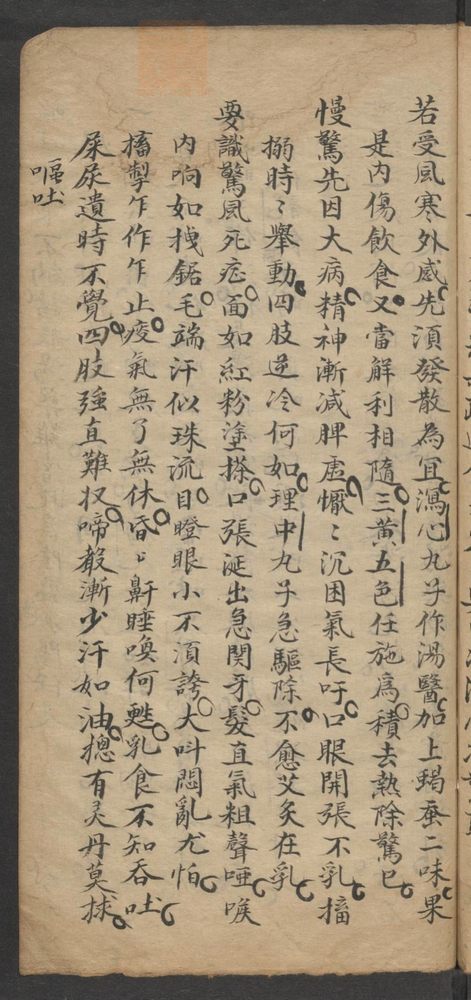 若受風寒外感先須發散為宜瀉心丸子作湯醫加上蝎蚕二味果
是内傷飲食又當解利相隨三黄五色任施為積去熱除驚已
慢驚先因大病精神漸减脾虚懨〻沉困氣長吁口眼開張不乳搐
搦時〻舉動四肢逆冷何如理中丸子急驅除不愈艾灸在乳
要識驚風死症面如紅粉塗搽口張涎出急関牙髮直氣粗聲唖喉
内响如拽鋸毛端汗似珠流目瞪眼小不須誇大叫悶亂尤怕
搐掣乍作乍止痰氣無了無休昏〻鼾睡喚何甦乳食不知吞吐
屎尿遺時不覺四肢强直難扠啼聲漸少汗如油揔有灵丹莫捄
嘔吐